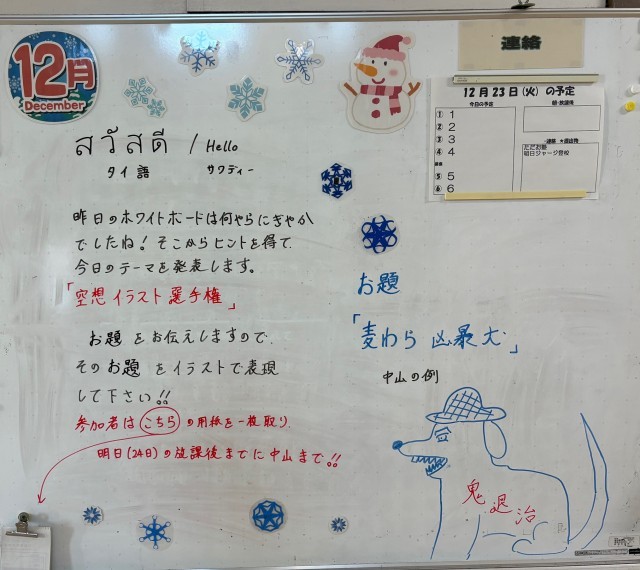 12月
December
สวัสดี / Hello
タイ語 サワディー
昨日のホワイトボードは何やらにぎやか
でしたね！そこからヒントを得て、
今日のテーマを発表します。
「空想イラスト選手権」
お題をお伝えしますので、
そのお題をイラストで表現
して下さい!!
参加者はこちらの用紙を一枚取り
明日(24日)の放課後までに中山まで!!
連絡
12月23日(火)の予定
今日の予定
① 1
② 2
③ 3
④ 4
⑤ 5
⑥ 6
朝・放課後
明日ジャージ登校
お題
「麦わら 凶暴犬」
中山の例
鬼退治